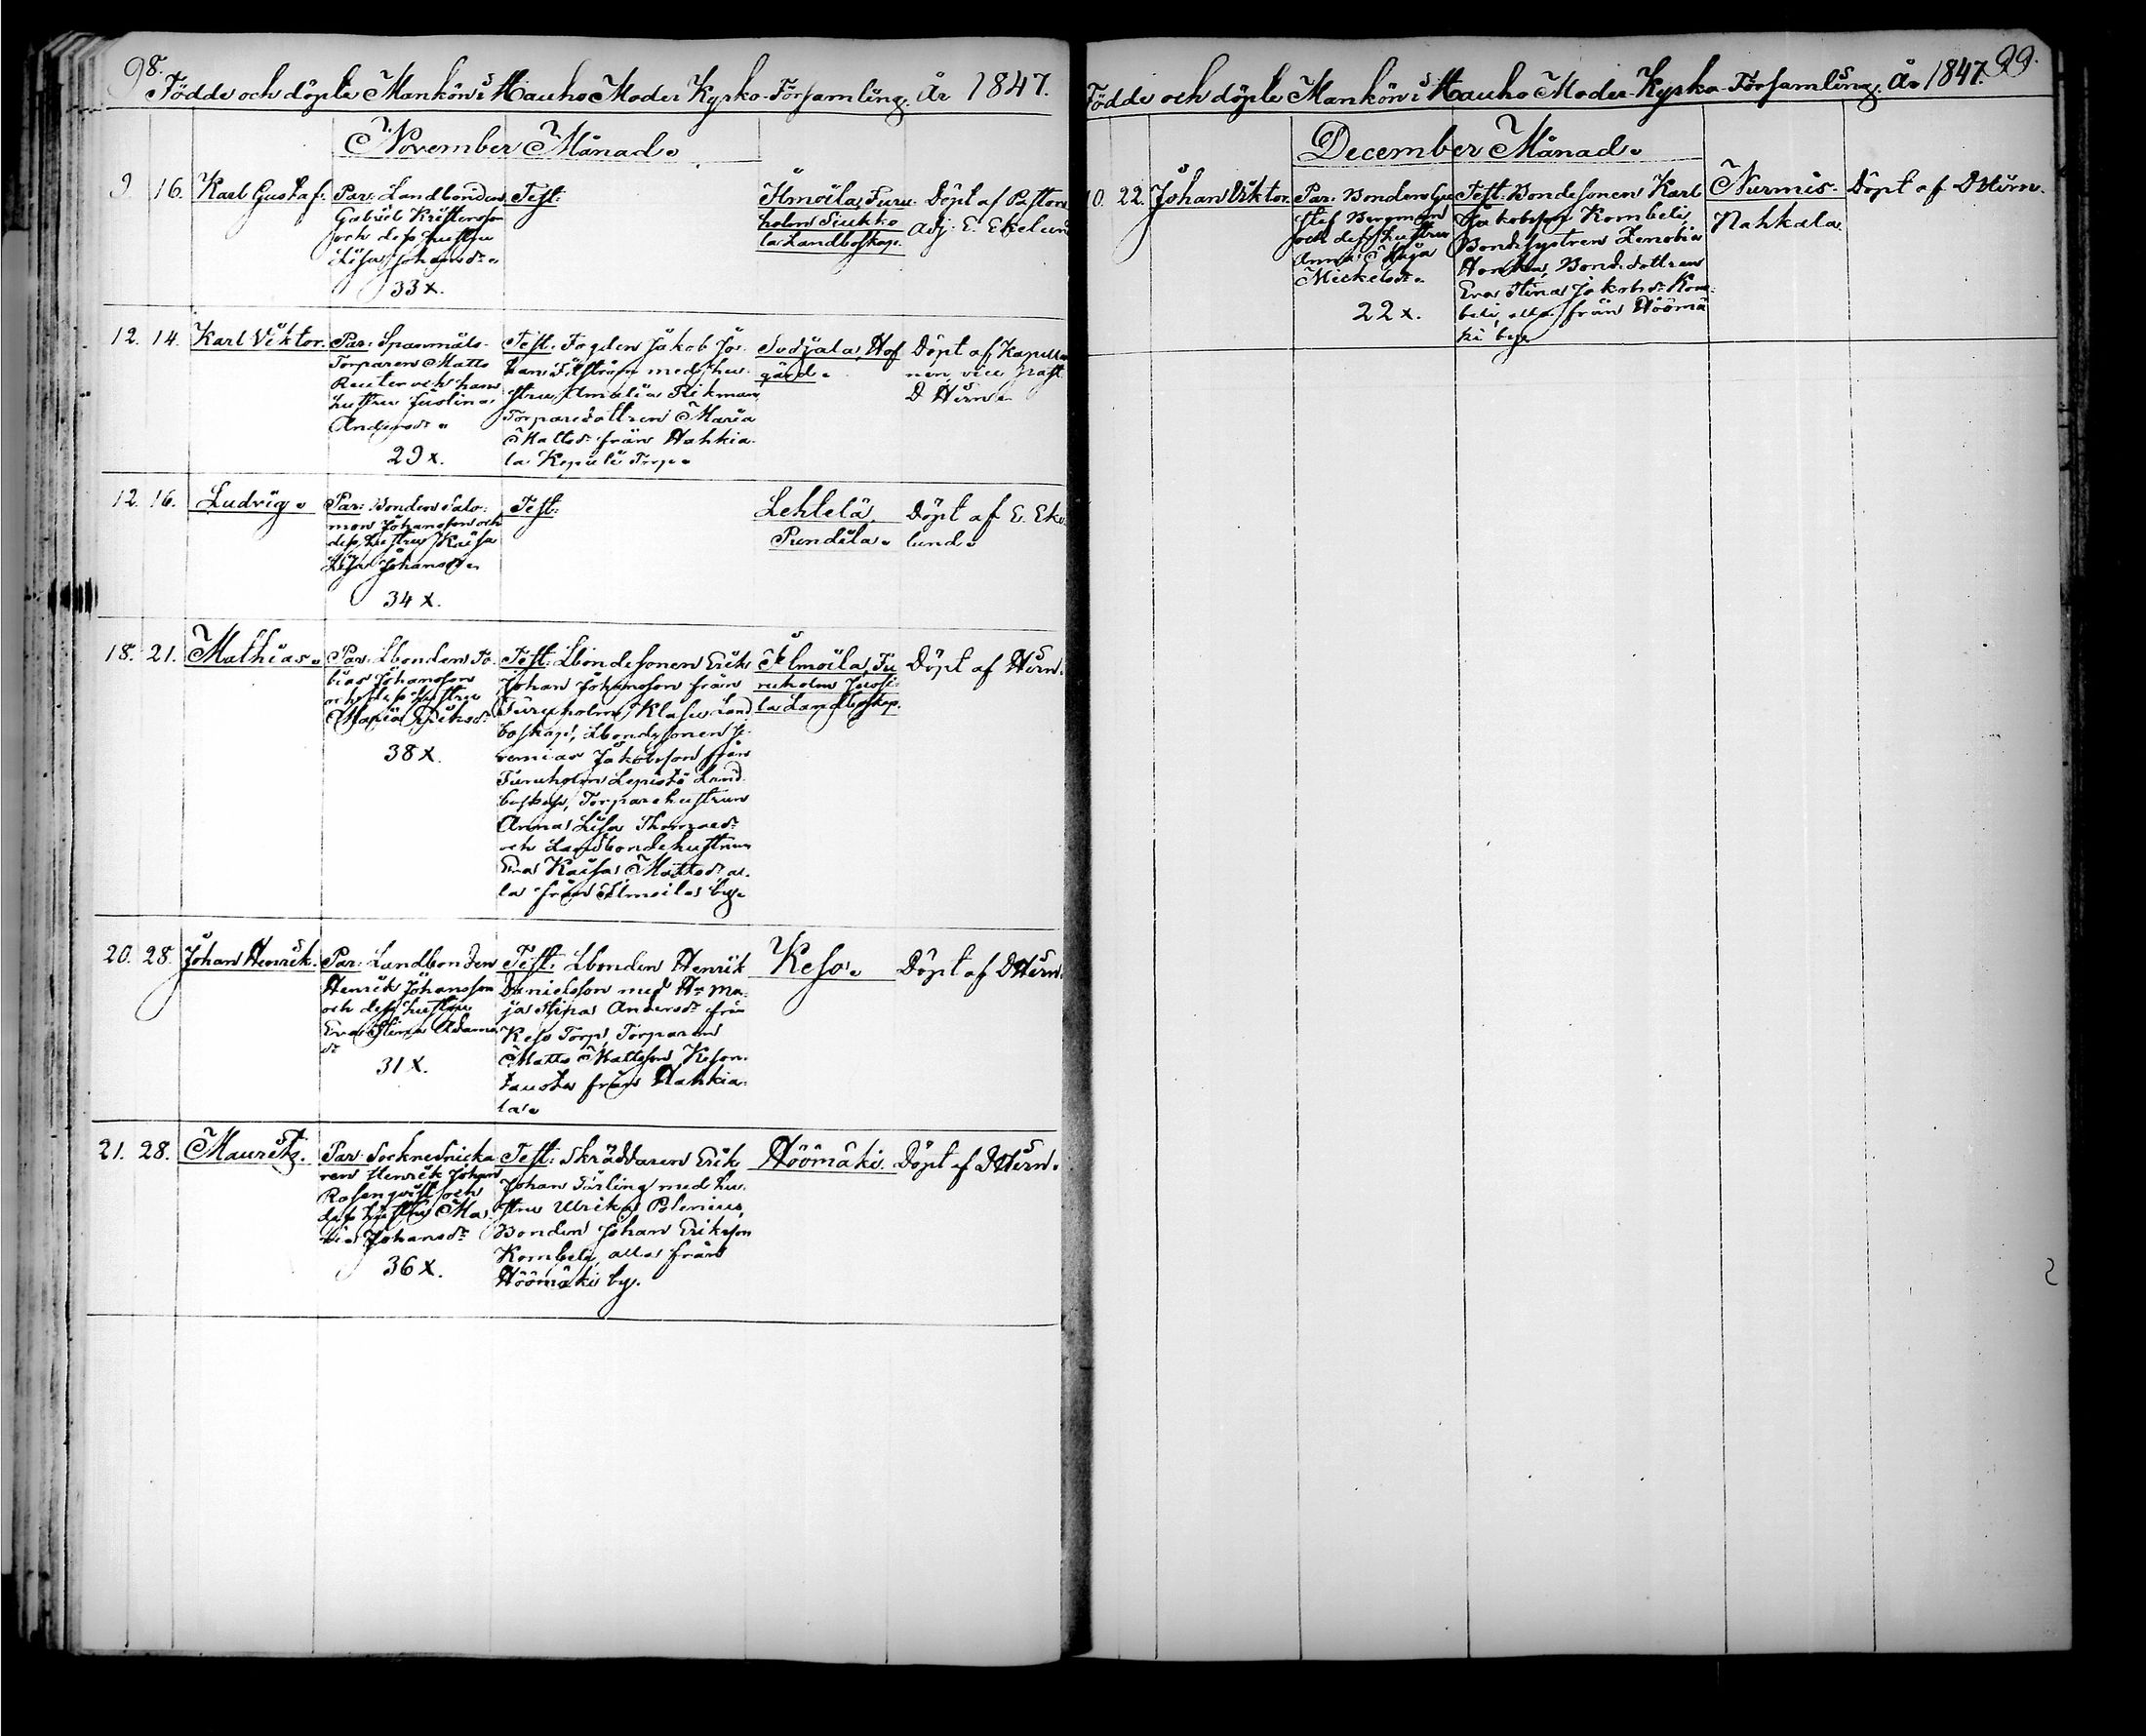 98.
Födde och döpte Mankön i Hauho Moder Kyrko-Församling. År 1847.
November Månad.
9. 16. Karl Gustaf.
Par: Landbonden
Gabriel Kristersson
och dess hustru
Lisa Johansdr
33 x.
Test:
Ilmoila, Furu-
holm Siukko
la Landboskap.
Döpt af Pastors
adj: E. Ekelund
12. 14. Karl Viktor.
Par: Spanmåls-
Torparen Matts
Reuter och hans
hustru Justina
Andersdr
29 x.
Test: Fogden Jakob Jo-
han med hu-
stru Amalia Rikman
Torparedottren Maria
Mattsdr från Hahkia-
la Torp.
Sodjala, Hof
gård.
Döpt af Kapella
nen, vice Prost
D Hirn.
12. 16. Ludvig.
Par: Bonden Salo-
mon Johansson och
dess hustru Kaisa
Lisa Johansdr
34 x.
Test:
Lehtelä
Pundila.
Döpt af E. Eke-
lund.
18. 21. Mathias.
Par: Lbonden To-
bias Johansson
och dess hustru
Maria Eriksdr
38 x.
Test: Lbondesonen Erik
Johan Johansson från
Furuholm Klasu Land
boskap, Lbondesonen Je-
remias Jakobsson från
Furuholm Lepistö Land-
boskap, Torparehustrun
Anna Lisa Thomasdr
och Landbondehustrun
Eva Kaisa Mattsdr al-
la från Ilmoila by.
Ilmoila, Fu
ruholm Jussi-
la Landboskap.
Döpt af Hirn.
20. 28. Johan Henrik.
Par: Landbonden
Henrik Johansson
och dess hustru
Eva Stina Adams
dr
31 x.
Test: Lbonden Henrik
Danielsson med Hu Ma-
ja Stina Andersdr från
Keso Torp, Torparen
Matts Mattsson Keson-
tausta från Hahkia-
la.
Keso.
Döpt af D Hirn.
21. 28. Mauritz.
Par: Socknesnicka
ren Henrik Johan
Rosenqvist och
dess hustru Ma-
ria Johansdr
36 x.
Test: Skräddaren Erik
Johan Färling med hu-
stru Ulrika Polenius,
Bonden Johan Eriksson
Kombeli, alla från
Höömäki by.
Höömäki.
Döpt af D Hirn.
99.
Födde och döpte Mankön i Hauho Moder-Kyrko-Församling. År 1847.
December Månad.
10. 22. Johan Viktor.
Par: Bonden Gu
staf Bergman
och dess hustru
Anna Maja
Mickelsdr
22 x.
Test: Bondesonen Karl
Jakobsson Kombeli,
Bondsystren Zenobia
Honka, Bondedottren
Eva Stina Jakobsdr Kom-
beli, alla från Höömä
ki by.
Nurmis-
Nahkala
Döpt af D Hirn.